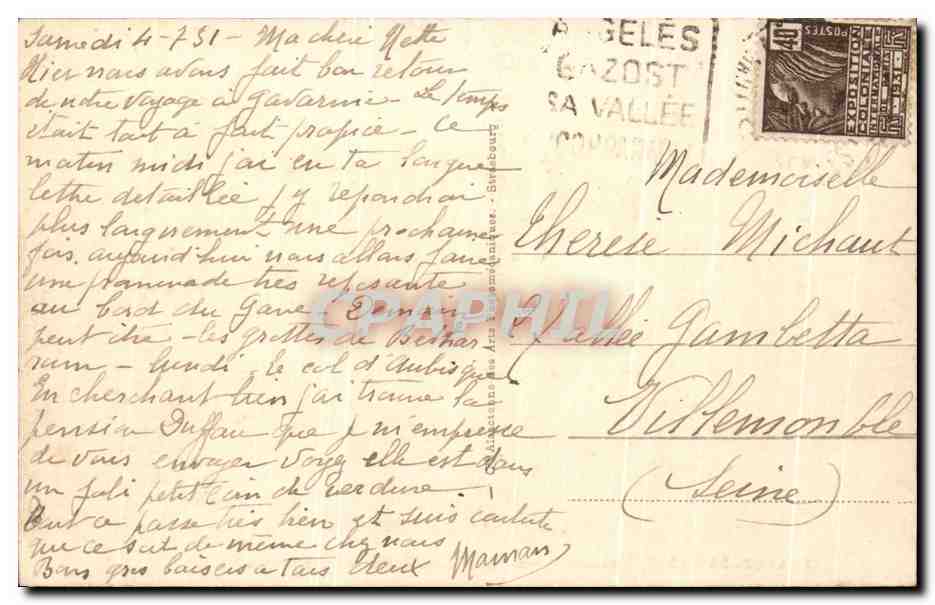 Samedi 4-7 31 - Ma chère Nette
Hier nous avons fait bon retour
de notre voyage à Gavarnie - Le temps
était tout à fait propice - Ce
matin midi j'ai eu ta longue
lettre détaillée j'y répondrai
plus largement une prochaine
fois. aujourd'hui nous allons faire
une promenade très reposante
au bord du Gave. Demain
peut être - les grottes de Bethar
ram - lundi, le col d'Aubisque
En cherchant bien j'ai trouvé la
pension Duffau que je m'empresse
de vous envoyer voyez elle est dans
un joli petit coin de verdure
Tout se passe très bien et suis contente
que ce soit de même chez nous
Bons gros baisers à tous deux Maman
Cie Alsacienne des Arts Photomécaniques. - Strasbourg
ARGELÈS
GAZOST
SA VALLÉE
40c
POSTES
EXPOSITION
COLONIALE
INTERNATIONALE
PARIS 1931
RF
Mademoiselle
Thérèse Michaut
allée Gambetta
Villemomble
(Seine)
CPAPHIL